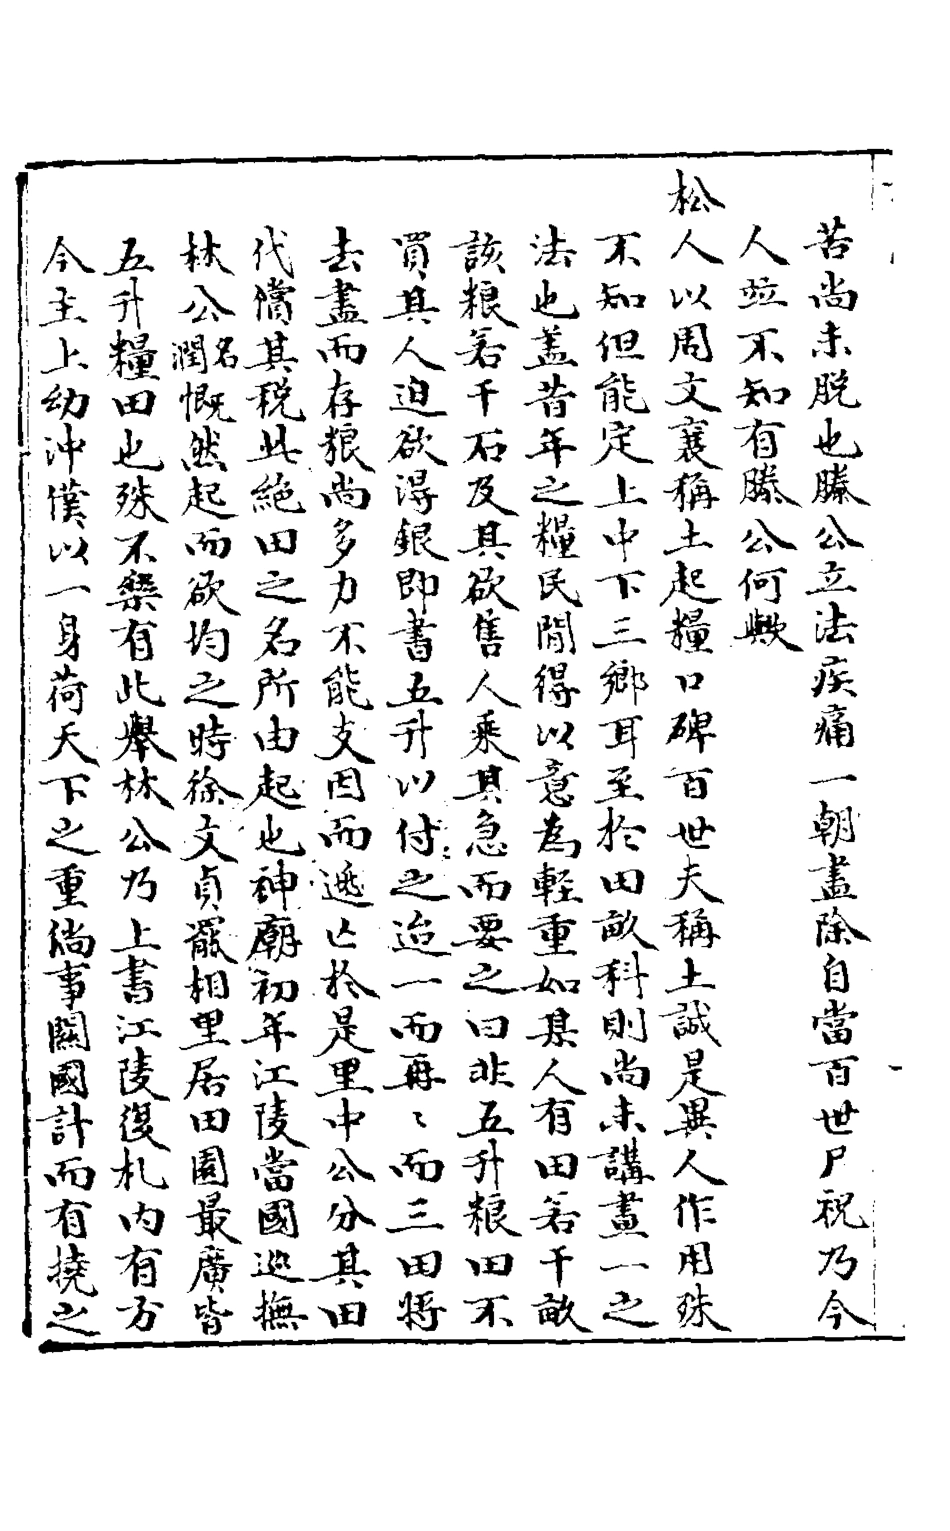 苦尚未脱也滕公立法疾痛一朝盡除自當百世尸祝乃今
人並不知有滕公何歟
松人以周文襄稱土起糧口碑百世夫稱土誠是異人作用殊
不知但能定上中下三鄉耳至於田畝科則尚未講畫一之
法也盖昔年之糧民間得以意為軽重如某人有田若干畝
該粮若干石及其欲售人乘其急而要之曰非五升粮田不
買其人迫欲得銀即書五升以付之迨一而再〻而三田将
去盡而存粮尚多力不能支因而逃亡於是里中公分其田
代償其税此絶田之名所由起也神廟初年江陵當國巡撫
林公名潤慨然起而欲均之時徐文貞罷相里居田園最廣皆
五升糧田也殊不樂有此舉林公乃上書江陵復札内有方
今主上幼沖僕以一身荷天下之重倘事關國計而有撓之